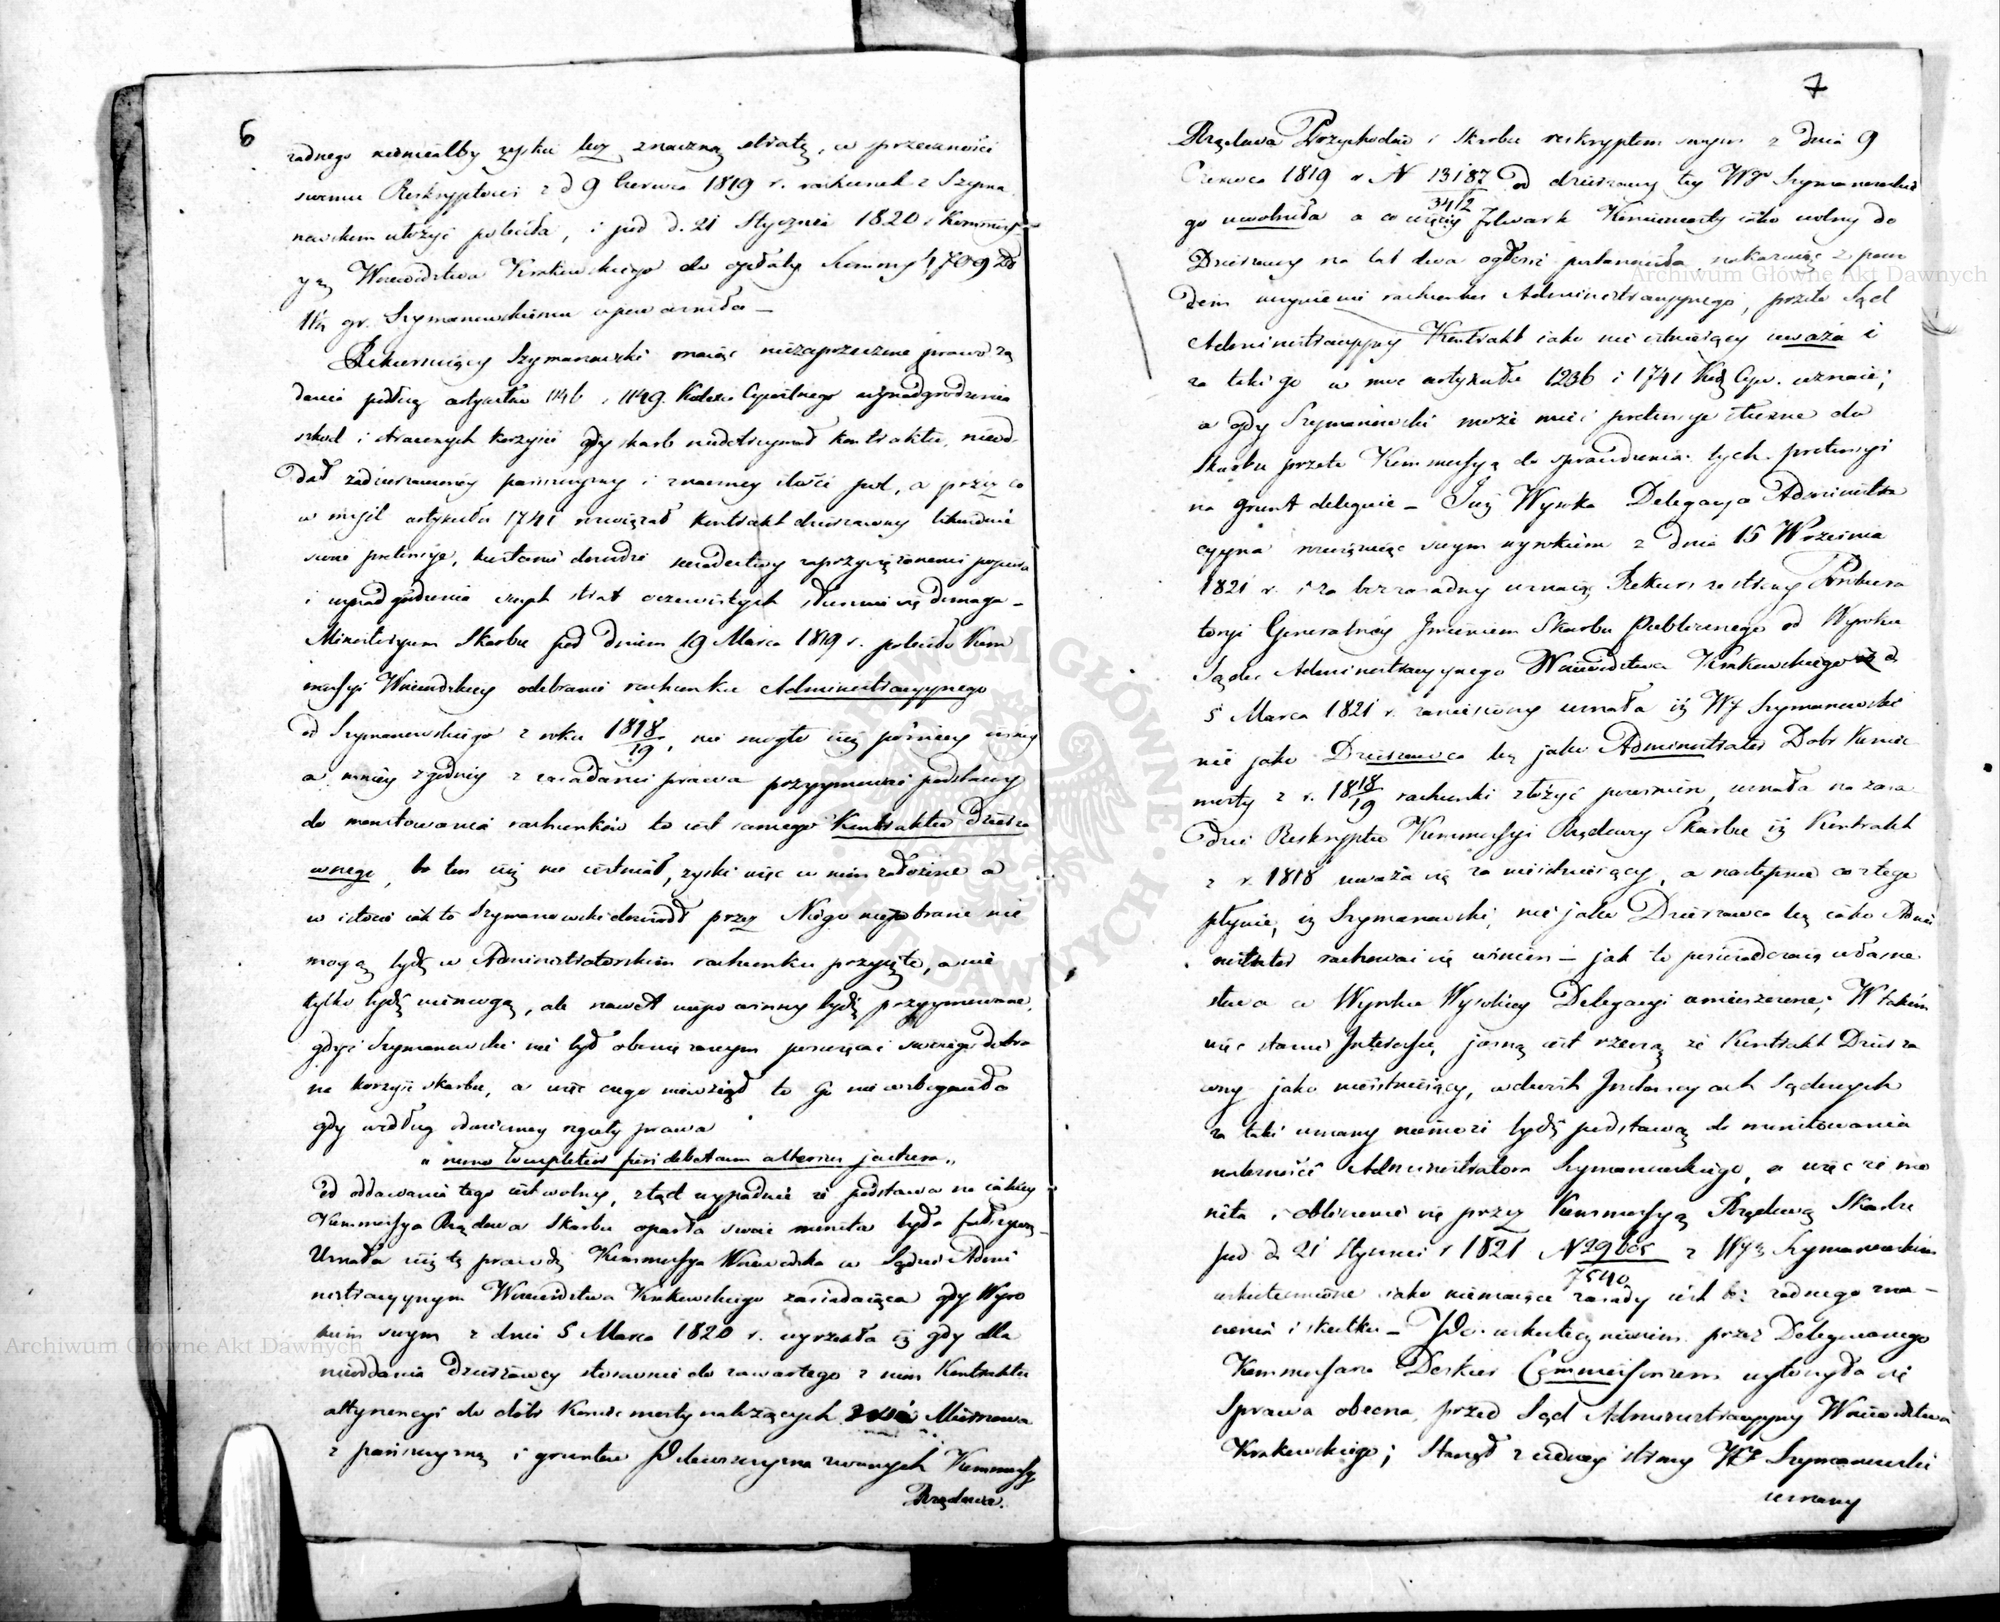 6
żadnego niemiałby zysku lecz znaczną stratę, w przeciwności
swemu Reskryptowi z d 9 Czerwca 1819 r. rachunek z Szyma
nowskim ułożyć poleciła, i pod d. 21 Stycznia 1820 r Kommiss
yą Woiewództwa Krakowskiego do opłaty Summy 4709 Zł
11½ gr. Szymanowskiemu upoważniła —
Rekuruiący Szymanowski maiąc niezaprzeczone prawo żą
dania podług artykułu 1146 i 1149. Kodexu Cywilnego wynadgrodzenia
szkod i straconych korzyści gdy skarb niedotrzymał kontraktu, nieod
dał zadzierżawioney pańszczyzny i znaczney ilości pol, a przez co
w myśl artykułu 1741 rozwiązał kontrakt dzierżawny likwiduie
swoie pretensye, kosztami dowodzi świadectwy zaprzysiężonemi popiera
i wynadgrodzenia swych strat oczewistych słusznie się domaga —
Ministeryum Skarbu pod dniem 19 Marca 1819 r. poleciło Kom
missyi Woiewódzkiey odebranie rachunku Administracyynego
od Szymanowskiego z roku 1818/19, nie mogło iuż pozniey inney
a mniey zgodney z zasadami prawa przyymować podstawy
do monitowania rachunków to iest samego Kontraktu Dzierża
wnego, bo ten iuż nie istniał, zyski więc w nim założone a
w istocie iak to Szymanowski dowiodł przez Niego niepobrane nie
mogą bydź w Administratorskim rachunku przyięte, a nie
tylko bydź niemogą, ale nawet niepowinny bydź przyymowane,
gdyż Szymanowski nie był obowiązanym poswięcać swoiego dobra
na korzyść skarbu, a więc czego niewziął to Go niewzbogaciło
gdy według odwieczney reguły prawa
„ nemo locupletior fieri debet cum alterius jactura „
od oddawania tego iest wolny, ztąd wypadnie że podstawa na iakiey
Kommissya Rządowa Skarbu oparła swoie monita była fałszywą —
Uznała iuż tę prawdę Kommissya Woiewódzka w Sądzie Admi
nistracyynym Woiewództwa Krakowskiego zasiadaiąca gdy Wyro
kiem swym z dnia 5 Marca 1820 r. wyrzekła iż gdy dla
nieoddania Dzierżawcy stosownie do zawartego z nim Kontraktu
attynencyi do dóbr Koniemosty należących Mieronowa
z pańszczyzną i gruntów zwanych Kommissy
Rządowa.
7
Rządowa Przychodów i Skarbu reskryptem swym z dnia 9
Czerwca 1819 r N 13187/3412 od dzierżawy tey WJo Szymanowskie
go uwolniła a co więcey folwark Koniemosty iako wolny do
Dzierżawy na lat dwa ogłosić postanowiła nakazuiąc z powo
dem uczynienie rachunku Administracyynego, przeto Sąd
Administracyyny Kontrakt iako nie istnieiący uważa i
za takigo w moc artykułu 1236 i 1741 Kod Cyw. uznaie;
a gdy Szymanowski może mieć pretensye słuszne do
Skarbu przeto Kommissyą do sprawdzenia tych pretensyi
na grunt deleguie — Już Wysoka Delegacya Administra
cyyna rozwiązuiąc swym wyrokiem z dnia 15 Września
1821 r. i za bezzasadny uznaiąc Rekurs ze strony Prokura
toryi Generalnéy Jmieniem Skarbu Publicznego od Wyroku
Sądu Administracyynego Woiewództwa Krakowskiego z d
5 Marca 1821 r. zaniesiony uznała iż WJ Szymanowski
nie jako Dzierżawca lecz jako Administrator Dobr Konie
mosty z r. 1818/19 rachunki złożyć powinien, uznała na zasa
dzie Reskryptu Kommissyi Rządowey Skarbu iż Kontrakt
z r. 1818 uważa się za nieistnieiący, a następnie co ztego
płynie, iż Szymanowski, nie jako Dzierżawca lecz iako Admi
nistrator rachować się winien — jak to poświadczaią własne
słowa w Wyroku Wysokiey Delegacyi umieszczone; W takim
więc stanie Jnteressu, jasną iest rzeczą że Kontrakt Dzierża
wny jako nieistnieiący, w dwóch Jnstancyach Sądowych
za taki uznany niemoże bydź podstawą do monitowania
należności Administratora Szymanowskiego, a więc że mo
nita i obliczenie się przez Kommissyą Rządową Skarbu
pod d. 21 Stycznia r 1821 N 29605/7540 z WJą Szymanowskim
uskutecznione iako niemaiące zasady iest bez żadnego zna —
czenia i skutku — Po uskutecznioném przez Delegowanego
Kommissarza Deskur Commissorium wytoczyła się
Sprawa obecna przed Sąd Administracyyny Woiewództwa
Krakowskiego; Stanął z iedney strony WJ Szymanowski
uznany
Archiwum Główne Akt Dawnych
Archiwum Główne Akt Dawnych
ARCHIWUM GŁÓWNE AKT DAWNYCH